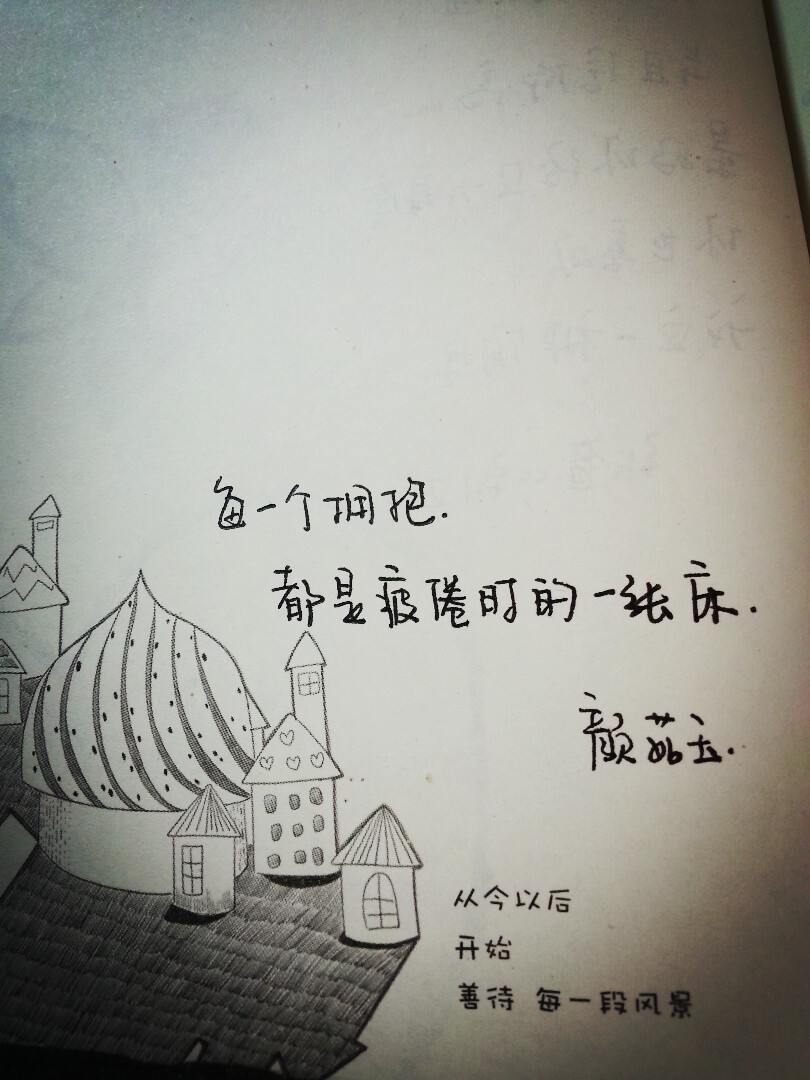 每一个拥抱.
都是疲倦时的一张床.
颜茹玉.
从今以后
开始
善待 每一段风景